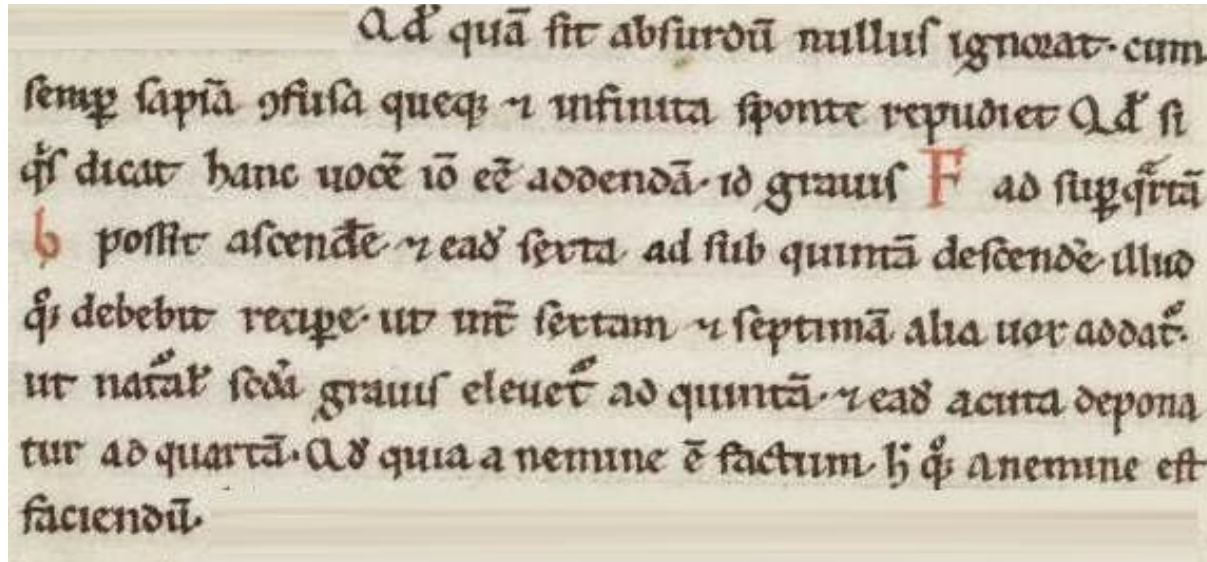 Qđ quā ſit abſurdū nulluſ ignorat. cum
ſemꝑ ſapīa ꝯfuſa queqꝫ ⁊ infinita ſponte repudiet Qđ ſi
qͥſ dicat hanc uocē iō eē addendā. id grauiſ F ad ſuꝑqͣrtā
b poſſit aſcenđe. ⁊ eađ ſexta ad ſub quintā deſcend̓e. illud
qͦꝫ debebit reciꝑe. ut int̄ ſextam ⁊ ſeptimā alia uox addat᷑.
ut nat᷑al̄ ſcd̓a grauiſ eleuet᷑ ad quintā. ⁊ eađ acuta depona
tur ad quartā. Qđ quia a nemine ē factum. h̄ qͦꝫ a nemine eſt
faciendū.